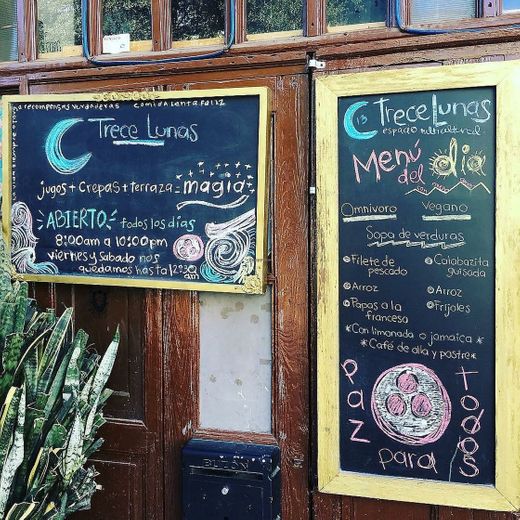 recompensas verdaderas comida lenta feliz
Trece Lunas
jugos + crepas + terraza = magia
ABIERTO todos los días
8:00am a 10:00pm
viernes y Sabado nos
quedamos hasta 12:30
am
13
Trece Lunas
espacio multicultural
Menú del día
Omnivoro Vegano
Sopa de verduras
Filete de pescado
Arroz
Papas a la francesa
Calabacita guisada
Arroz
Frijoles
*Con limonada o jamaica*
*Café de olla y postre*
Paz para todos
BUZÓN